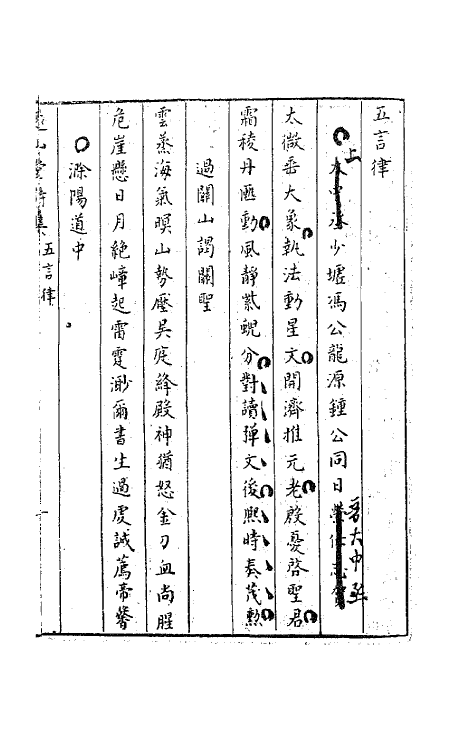 五言律
上大中丞少墟馮公龍源鍾公同日 晉大中丞
太微垂大象執法動星文開濟推元老殷憂啓聖君
霜稜丹匭動風靜紫蜺分對讀彈文後熙時奏茂勲
過關山謁關聖
雲蒸海氣暝山勢壓吳疾絳殿神猶怒金刀血尚腥
危崖懸日月絶嶂起雷霆渺爾書生過虔誠薦帝馨
滁陽道中
遠山堂詩集 五言律 一